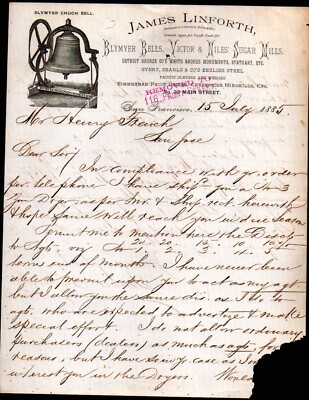 BLYMYER CHURCH BELL.
JAMES LINFORTH,
General Agent for Pacific Coast for
BLYMYER BELLS, VICTOR & NILES SUGAR MILLS,
DETROIT BRONZE CO'S WHITE BRONZE MONUMENTS, STATUARY, ETC.
STUBBS, SEARLE & CO'S ENGLISH STEEL
ZIMMERMAN FRUIT
REMOVED TO
116 FRONT
MAIN STREET.
San Francisco, 15 July 1885
Mr Henry
San Jose
Dear Sir/
In compliance with yr. order
per telephone I have ship'd you a No 3
Zim Dryer, as per Inv. & Ship. rect. herewith
& hope same will reach you in due season
Permit me to mention here the Discts
to Agts. viz
terms end of month. I have never been
able to prevail upon you to act as my agt.
but I allow you the same dis. as I do to
agts. who are expected to advertise & make
special effort. I do not allow ordinary
purchasers (dealers) as much as agts. for
reasons, but I have so in yr case as I
interest you in the Dryers.